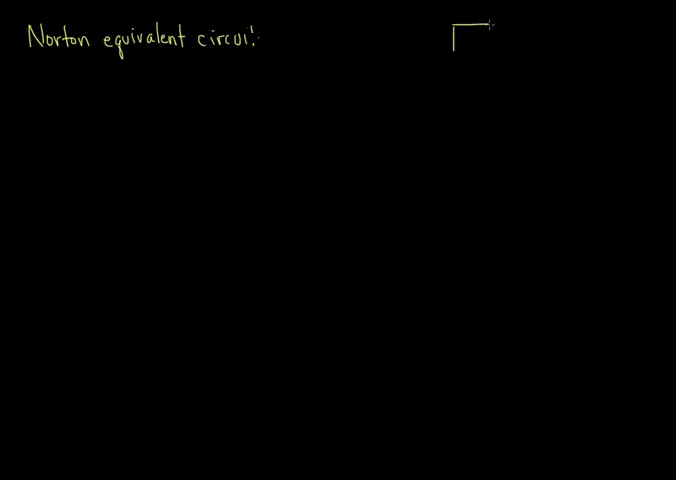 Norton equivalent circui